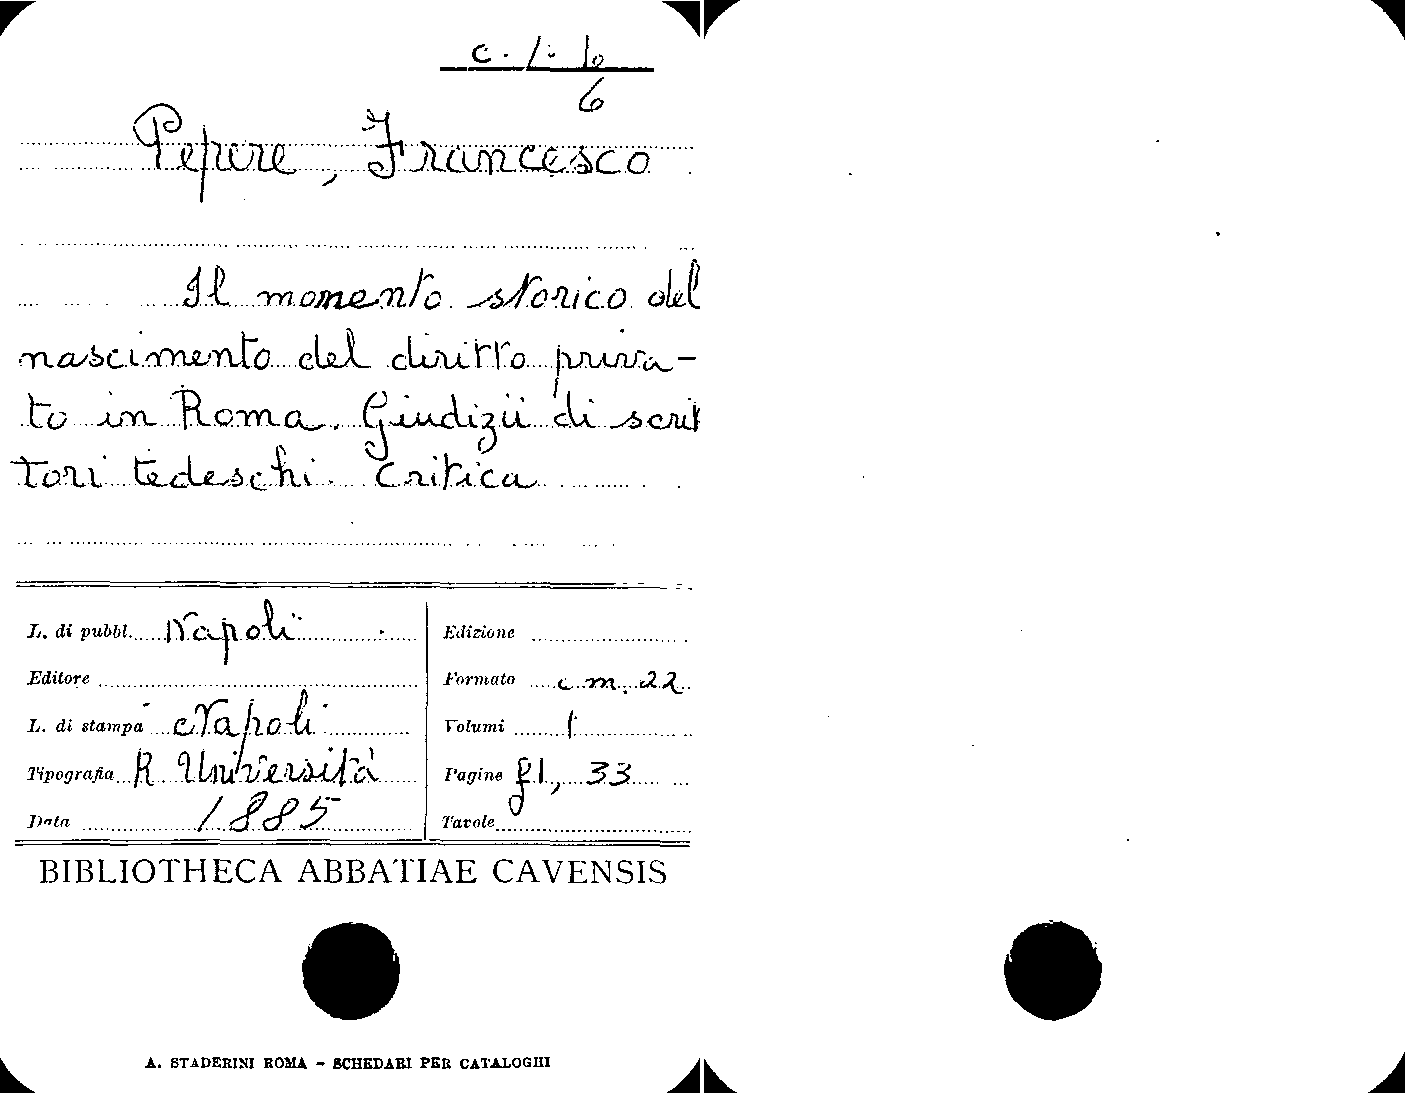 6
Pepere, Francesco
Il momento storico del
nascimento del diritto priva-
to in Roma. Giudizii di scrit
tori tedeschi. Critica
L. di pubbl. Napoli
Edizione
Editore
Formato cm. 22
L. di stampa Napoli
Volumi 1
Tipografia R. Università
Pagine 33
Data 1885
Tavole
BIBLIOTHECA ABBATIAE CAVENSIS
A. STADERINI ROMA - SCHEDARI PER CATALOGHI